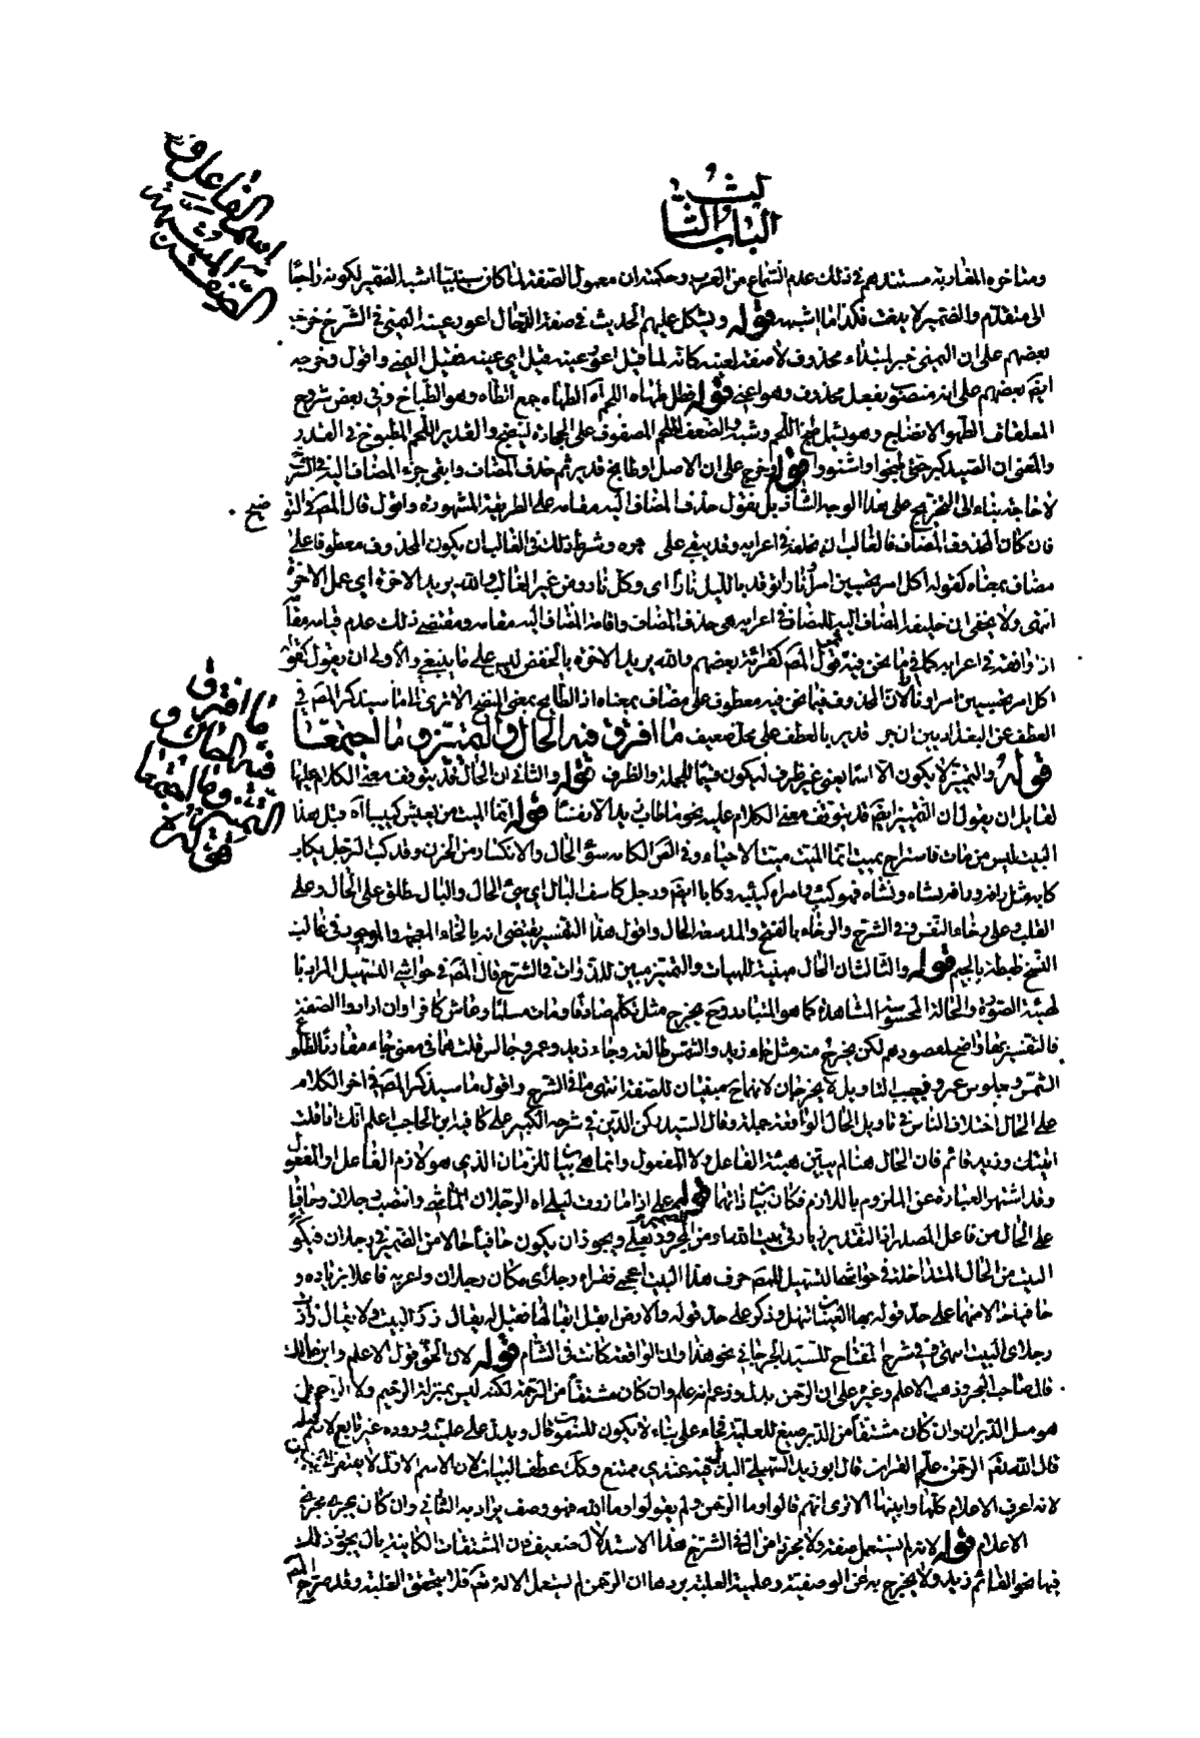 الباب الثالث
اسم الفاعل و
الصفة المشبهة
ومتأخره المغاربة مستندهم في ذلك عدم السماع من العرب وحكمته ان معمول الصفة لما كان سببيا اشبه الضمير لكونه راجعا
الى متقدم والضمير لا ينعت فكذا ما اشبهه قوله ويشكل عليهم الحديث في صفة الدجال اعور عينه اليمنى في الشرح خرجه
بعضهم على ان اليمنى خبر لمبتداء محذوف لا صفة لعينه كانه لما قيل اعور عينه قيل اي عينه فقيل اليمنى واقول وخرجه
ايضا بعضهم على انه منصوب بفعل محذوف وهو اعني قوله فظل طهاة اللحم آه الطهاه جمع الطاه وهو الطباخ وفي بعض شروح
المعلقات الطهو الانضاج وهو يشمل طبخ اللحم وشيه والصفيف اللحم المصفوف على الحجارة لينضج والقدير اللحم المطبوخ في القدر
والمعنى ان الصيد كثر حتى طبخوا واشتووا قوله وخرج على ان الاصل او طابخ قدير ثم حذف المضاف وابقى جر المضاف اليه في الشرح
لا حاجة بناء الى التخريج على هذا الوجه الشاذ بل يقول حذف المضاف اليه مقامه على الطريقة المشهورة واقول قال المص في التو
ضيح
فان كان المحذوف المضاف فالغالب ان يخلفه في اعرابه وقد يبقى على جره وشرط ذلك في الغالب ان يكون المحذوف معطوفا على
مضاف بمعناه كقوله اكل امرئ تحسبين امرأ ونار توقد بالليل نارا اي وكل نار ومن غير الغالب والله يريد الاخرة اي عمل الاخرة
انتهى ولا يخفى ان خليفة المضاف اليه للمضاف في اعرابه هي حذف المضاف واقامة المضاف اليه مقامه ومقتضى ذلك عدم قيامه مقا
اذا وافقه في اعرابه كما في ما نحن فيه قول المص كقرائة بعضهم والله يريد الاخرة بالخفض ليس على ما ينبغي والأولى ان يقول كقوله
اكل امرئ تحسبين امرأ ونارا لان المحذوف فيما نحن فيه معطوف على مضاف بمعناه اذ الطابخ بمعنى المنضج الا ترى الى ما سيذكر المص في
العطف عن البغداديين ان جر قدير بالعطف على محل ضعيف ما افترق فيه الحال والتمييز وما اجتمعا
ما افترق
فيه الحال و
التمييز وما اجتمعا
قوله والتمييز لا يكون الا اسما يعني غير ظرف ليكون قسيما للجملة والظرف قوله والثاني ان الحال قد يتوقف معنى الكلام عليها
لقايل ان يقول ان التمييز ايضا قد يتوقف معنى الكلام عليه نحو ما طاب زيد الا نفسا قوله انما الميت من يعيش كئيبا آه وقبل هذا
البيت ليس من مات فاستراح بميت انما الميت ميت الاحياء وفي الص الكآبة سوء الحال والانكسار من الحزن وقد كئب الرجل يكاب
كابة مثل رافة ورأفة ونشاة ونشاءة فهو كئيب وامراة كئيبة وكاباا ايضا ورجل كاسف البال اي سيئ الحال والبال يطلق على الحال وعلى
القلب وعلى رخاء النفس وفي الشرح والرخاء بالفتح والمد سعة الحال واقول هذا التفسير يقتضي انه بالخاء المعجمة والموجود في غالب
النسخ ضبطه بالجيم قوله والثالث ان الحال مبينة للهيات والتمييز مبين للذوات في الشرح قال المص في حواشي التسهيل المراد با
لهيئة الصورة والحالة المحسوسة المشاهدة كما هو المتبادر وح يخرج مثل تكلم صادقا ومات مسلما وعاش كافرا وان ارادوا الصفة
فالتفسير بها واضح لمقصودهم لكن يخرج منه مثل جاء زيد والشمس طالعة وجاء زيد وعمرو جالس قلت هما في معنى جاء مقارنا لطلوع
الشمس وجلوس عمرو فيجب التاويل لا يخرجان لانهما ح مبينان للصفة انتهى ما في الشرح واقول ما سيذكر المص في آخر الكلام
على الحال اختلاف الناس في تاويل الحال الواقعة جملة وقال السيد ركن الدين في شرحه الكبير على كافية ابن الحاجب اعلم انك اذا قلت
اتيتك وزيد قائم فان الحال هنا لم يبين هيئة الفاعل ولا المفعول وانما هي بيان للزمان الذي هو لازم الفاعل او المفعول
وقد اشتهر العبارة عن الملزوم باللازم فكان بيانا لهما قوله على اذا ما زرت ليلى آه الرجلان الماشي وانتصب رجلان وحافيا
على الحال من فاعل المصدر اذ التقدير زيارتي بيت الله او من الضمير المجرور بعلي ويجوز ان يكون حافيا حالا من الضمير في رجلان فيكو
البيت من الحال المتداخلة في حواشي التسهيل للمص حرف هذا البيت اعجمي فقراء رجلاى مكان رجلان واعربه فاعلا بزيادة و
حافيا حالا منهما على حد قوله بها العينان تنهل وذكر على حد قوله ولا ارض ابقل ابقالها فقيل له يقال زرت البيت ولا يقال زارت
رجلاى البيت انتهى وفي شرح المفتاح للسيد الجرجاني نحو هذا وان الواقعة كانت في الشام قوله لان الحق قول الاعلم وابن مالك
قال صاحب البحر وذهب الاعلم وغيره على ان الرحمن بدل وزعم انه علم وان كان مشتقا من الرحمة لكنه ليس بمنزلة الرحيم ولا الراحم بل
هو مثل الدبران وان كان مشتقا من الدبر صيغ للعلمية فجاء على بناء لا يكون للنعوت قال ويدل على علميته وروده غير تابع لاسم قبله
قال الله تعالى الرحمن علم القران قال ابو زيد السهيلي البدل فيه عندي ممتنع وكك عطف البيان لان الاسم الاول لا يفتقر الى تبيين
لانه اعرف الاعلام كلها وابينها الا ترى انهم قالوا وما الرحمن ولم يقولوا وما الله فهو وصف يراد به الثناء وان كان يجري مجرى
الاعلام قوله لانه لم يستعمل صفة ولا مجردا من ال في الشرح هذا الاستدلال ضعيف فان المشتقات الكاينة بال يجوز ذلك
فيها نحو القائم زيد ولا يخرج به عن الوصفية وعلمية الغلبة يردها ان الرحمن لم يستعمل الا له تع فلا يتحقق الغلبة وقد صرح المص